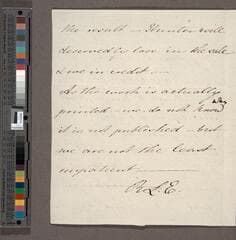 The result – Hunter will
deservedly lose in the sale
& we in credit –
As the work is actually
printed – we do not know why
it is not published – but
we are not the least
impatient –
R. L. E.